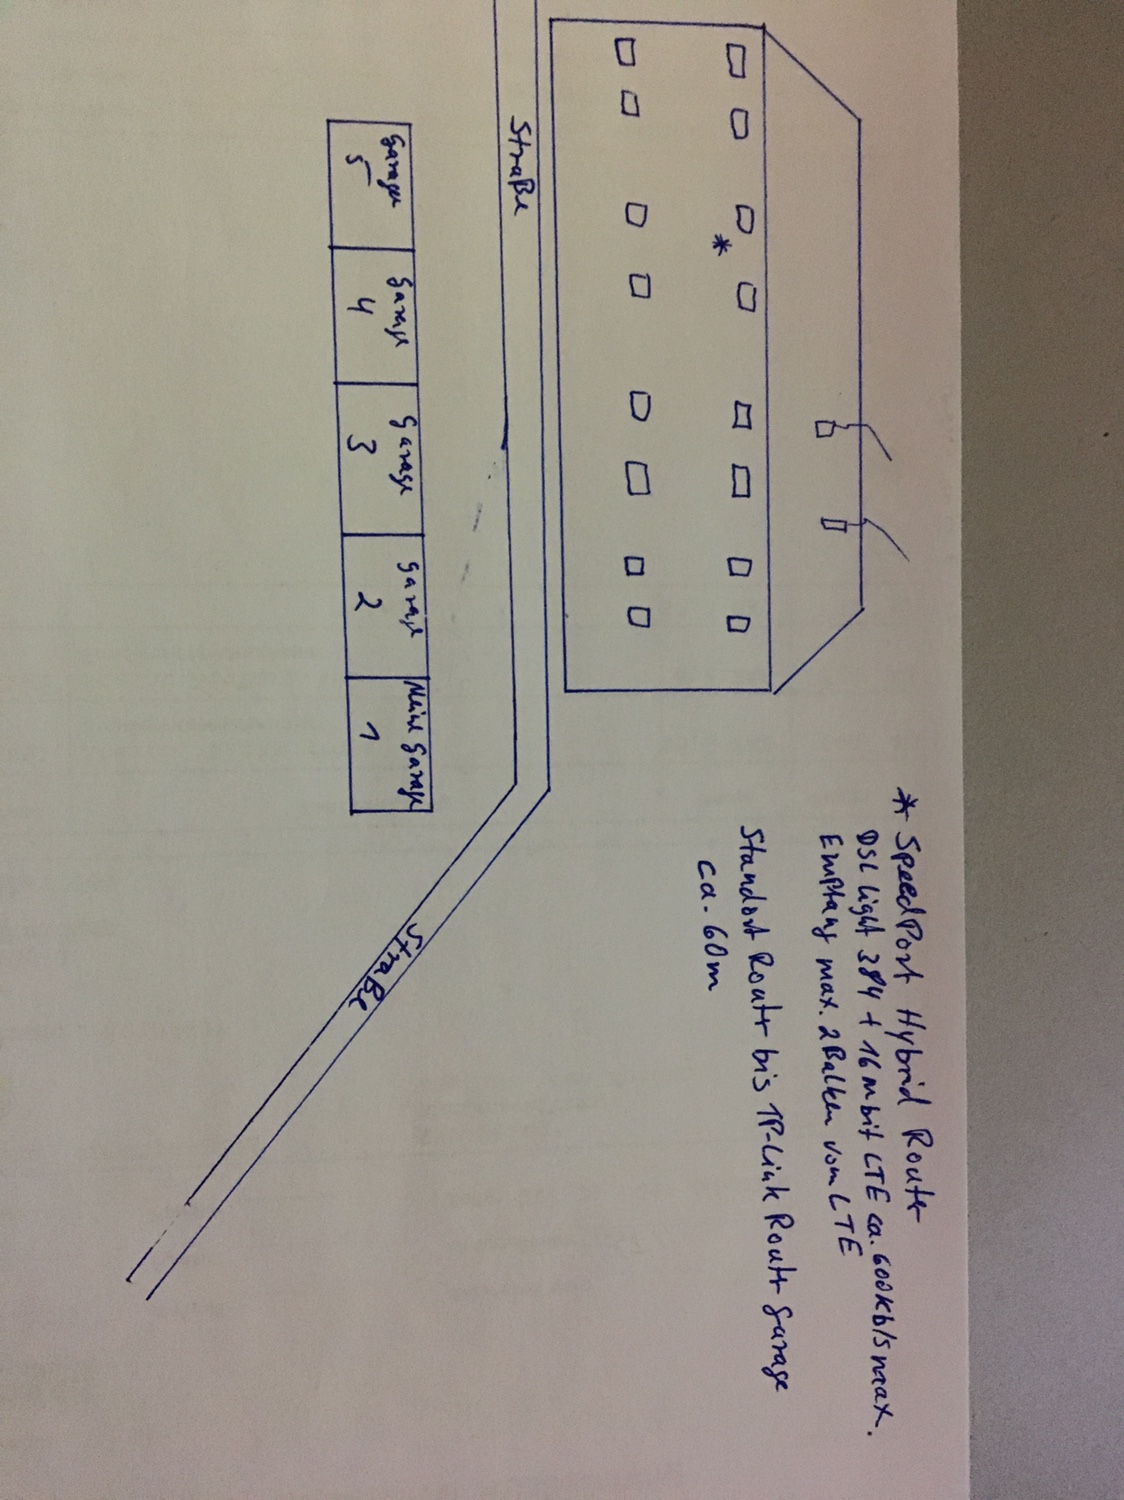 * SpeedPort Hybrid Router
DSL light 384 + 16mbit LTE ca. 600kb/s max.
Empfang max. 2 Balken vom LTE
Standort Router bis TP-Link Router Garage
ca. 60m
*
Straße
Garage
5
Garage
4
Garage
3
Garage
2
Meine Garage
1
Straße